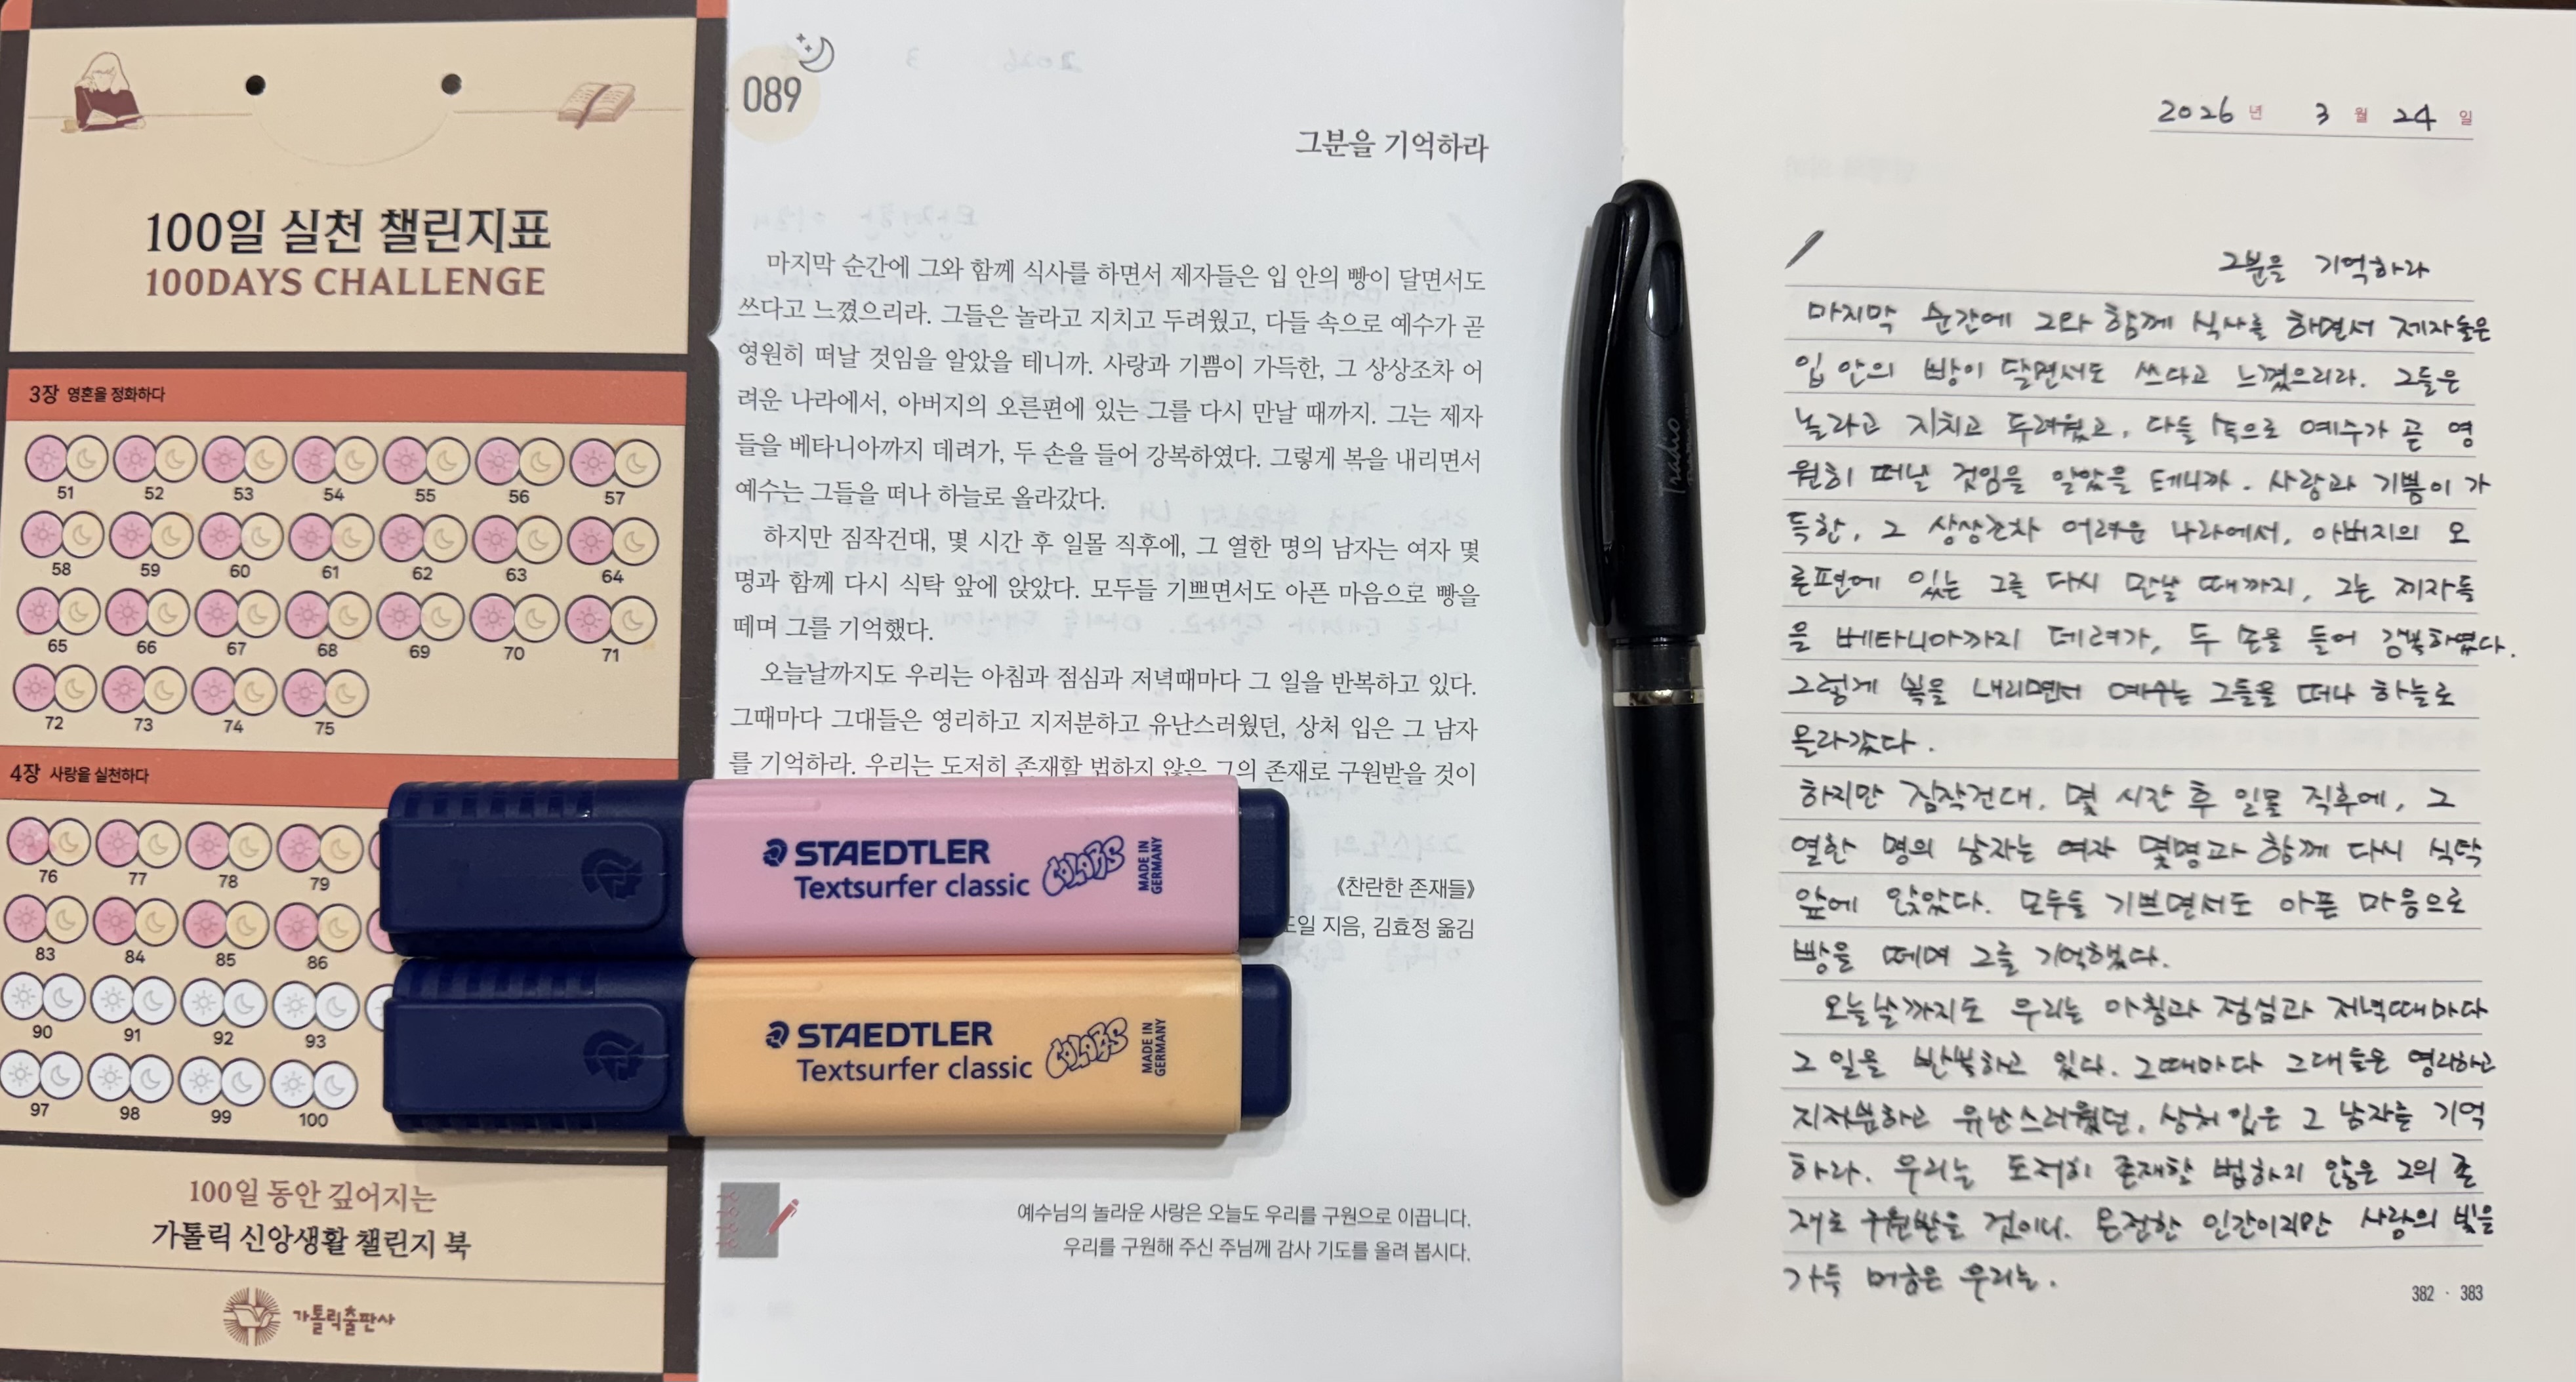 100일 실천 챌린지표
100DAYS CHALLENGE
3장 영혼을 정화하다
51 52 53 54 55 56 57
58 59 60 61 62 63 64
65 66 67 68 69 70 71
72 73 74 75
4장 사랑을 실천하다
76 77 78 79
83 84 85 86
90 91 92 93
97 98 99 100
100일 동안 깊어지는
가톨릭 신앙생활 챌린지 북
가톨릭출판사
089
그분을 기억하라
마지막 순간에 그와 함께 식사를 하면서 제자들은 입 안의 빵이 달면서도
쓰다고 느꼈으리라. 그들은 놀라고 지치고 두려웠고, 다들 속으로 예수가 곧
영원히 떠날 것임을 알았을 테니까. 사랑과 기쁨이 가득한, 그 상상조차 어
려운 나라에서, 아버지의 오른편에 있는 그를 다시 만날 때까지. 그는 제자
들을 베타니아까지 데려가, 두 손을 들어 강복하였다. 그렇게 복을 내리면서
예수는 그들을 떠나 하늘로 올라갔다.
하지만 짐작건대, 몇 시간 후 일몰 직후에, 그 열한 명의 남자는 여자 몇
명과 함께 다시 식탁 앞에 앉았다. 모두들 기쁘면서도 아픈 마음으로 빵을
떼며 그를 기억했다.
오늘날까지도 우리는 아침과 점심과 저녁때마다 그 일을 반복하고 있다.
그때마다 그대들은 영리하고 지저분하고 유난스러웠던, 상처 입은 그 남자
를 기억하라. 우리는 도저히 존재할 법하지 않은 그의 존재로 구원받을 것이
《찬란한 존재들》
도일 지음, 김효정 옮김
예수님의 놀라운 사랑은 오늘도 우리를 구원으로 이끕니다.
우리를 구원해 주신 주님께 감사 기도를 올려 봅시다.
STAEDTLER
Textsurfer classic
COLORS
MADE IN
GERMANY
STAEDTLER
Textsurfer classic
COLORS
MADE IN
GERMANY
Tradio
2026 년 3 월 24 일
그분을 기억하라
마지막 순간에 그와 함께 식사를 하면서 제자들은
입 안의 빵이 달면서도 쓰다고 느꼈으리라. 그들은
놀라고 지치고 두려웠고, 다들 속으로 예수가 곧 영
원히 떠날 것임을 알았을 테니까. 사랑과 기쁨이 가
득한, 그 상상조차 어려운 나라에서, 아버지의 오
른편에 있는 그를 다시 만날 때까지, 그는 제자들
을 베타니아까지 데려가, 두 손을 들어 강복하였다.
그렇게 복을 내리면서 예수는 그들을 떠나 하늘로
올라갔다.
하지만 짐작건대, 몇 시간 후 일몰 직후에, 그
열한 명의 남자는 여자 몇명과 함께 다시 식탁
앞에 앉았다. 모두들 기쁘면서도 아픈 마음으로
빵을 떼며 그를 기억했다.
오늘날까지도 우리는 아침과 점심과 저녁때마다
그 일을 반복하고 있다. 그때마다 그대들은 영리하고
지저분하고 유난스러웠던, 상처 입은 그 남자를 기억
하라. 우리는 도저히 존재할 법하지 않은 그의 존
재로 구원받을 것이니. 온전한 인간이지만 사랑의 빛을
가득 머금은 우리는.
382 · 383